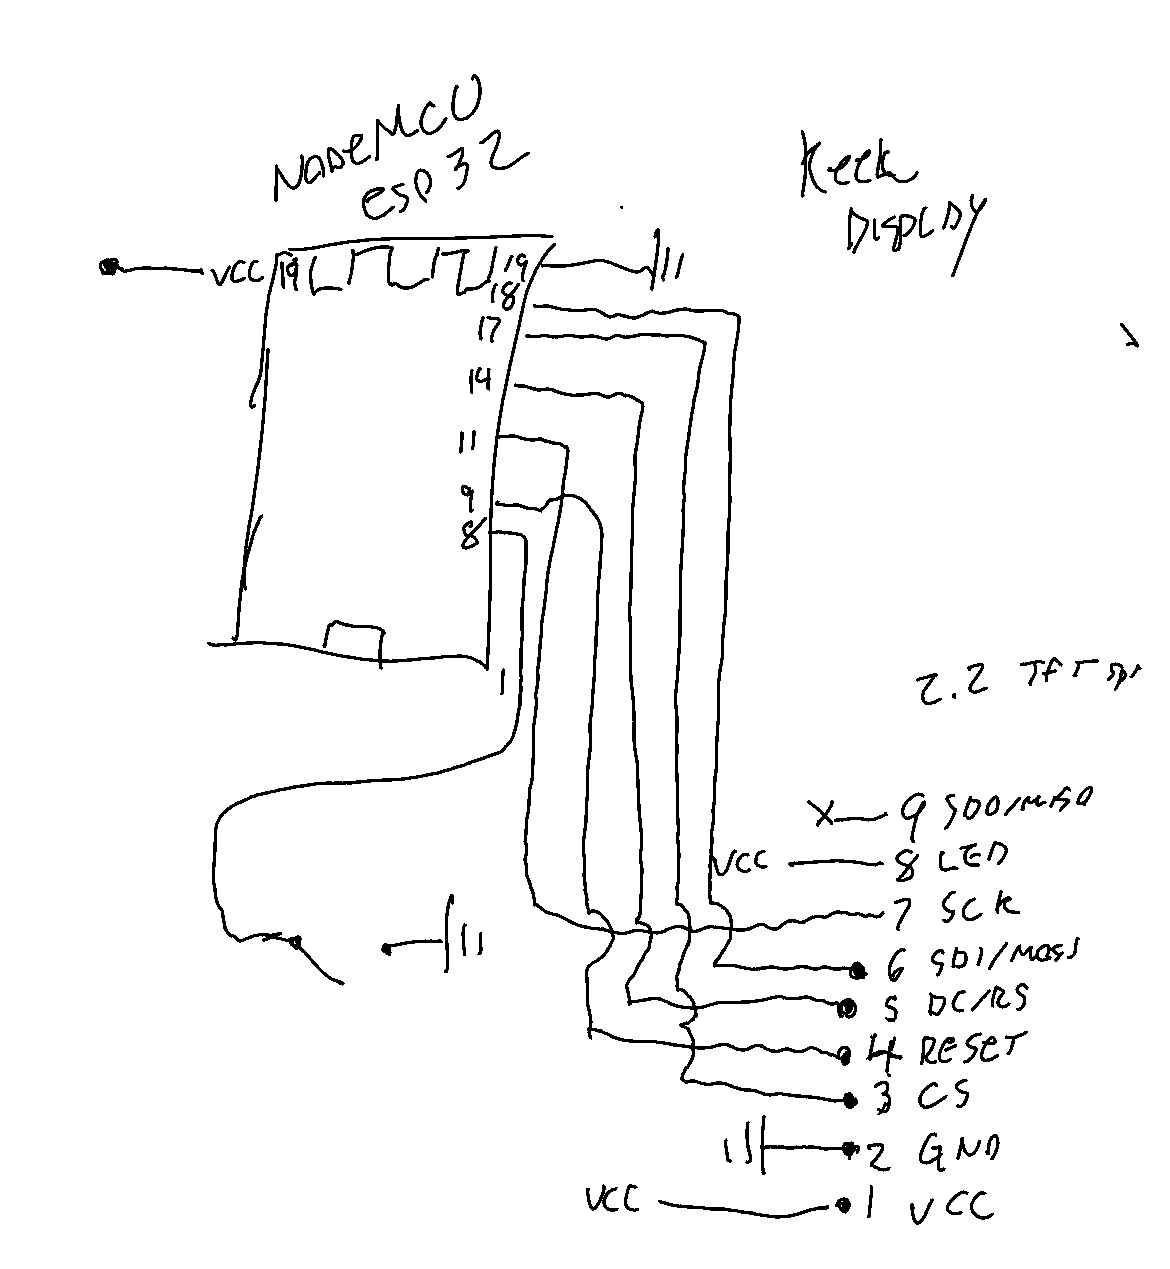 NODEMCU
ESP32
Keek
DISPLAY
VCC 19 19
18
17
14
11
9
8
1
2.2 TFT SPI
X 9 SDO/MISO
VCC 8 LED
7 SCK
6 SDI/MOSI
5 DC/RS
4 RESET
3 CS
2 GND
VCC 1 VCC